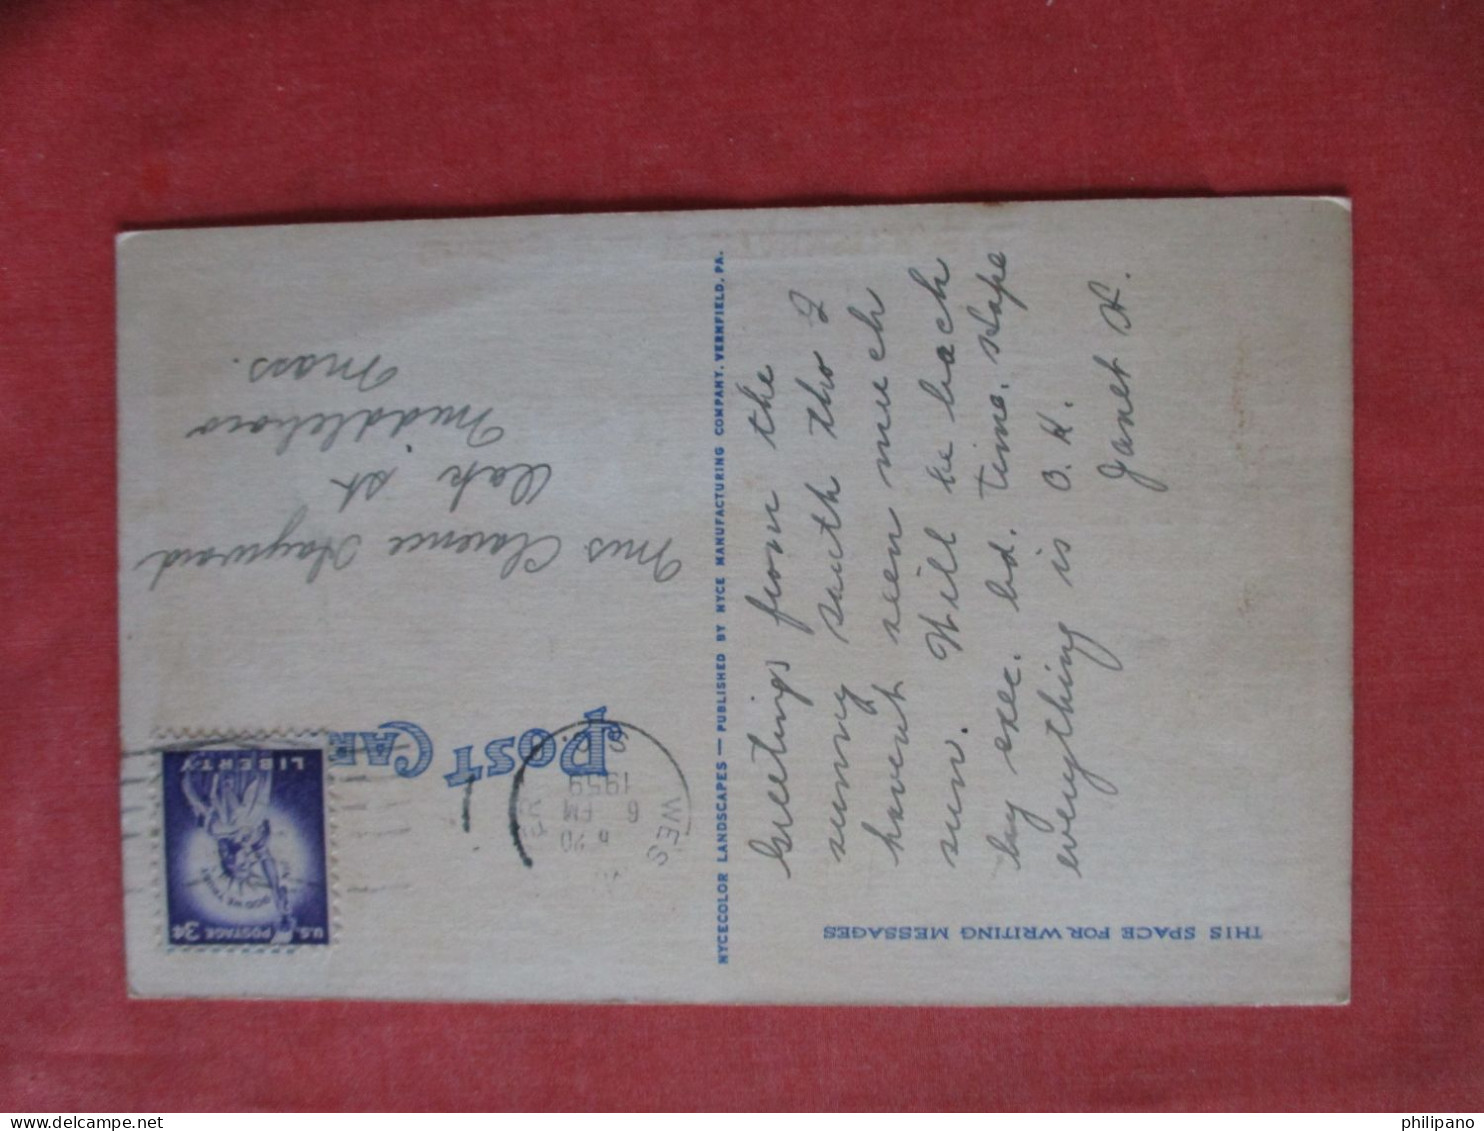 THIS SPACE FOR WRITING MESSAGES
Greetings from the
sunny south tho I
havent seen much
sun. Will be back
by exec. bd. time. Hope
everything is O.K.
Janet H.
NYCECOLOR LANDSCAPES — PUBLISHED BY NYCE MANUFACTURING COMPANY, VERNFIELD, PA.
POST CAR
WES
6
PM
1959
U.S. POSTAGE 3¢
LIBERTY
Mrs Clarence Hayward
Oak St
Middleboro
Mass.
philipano